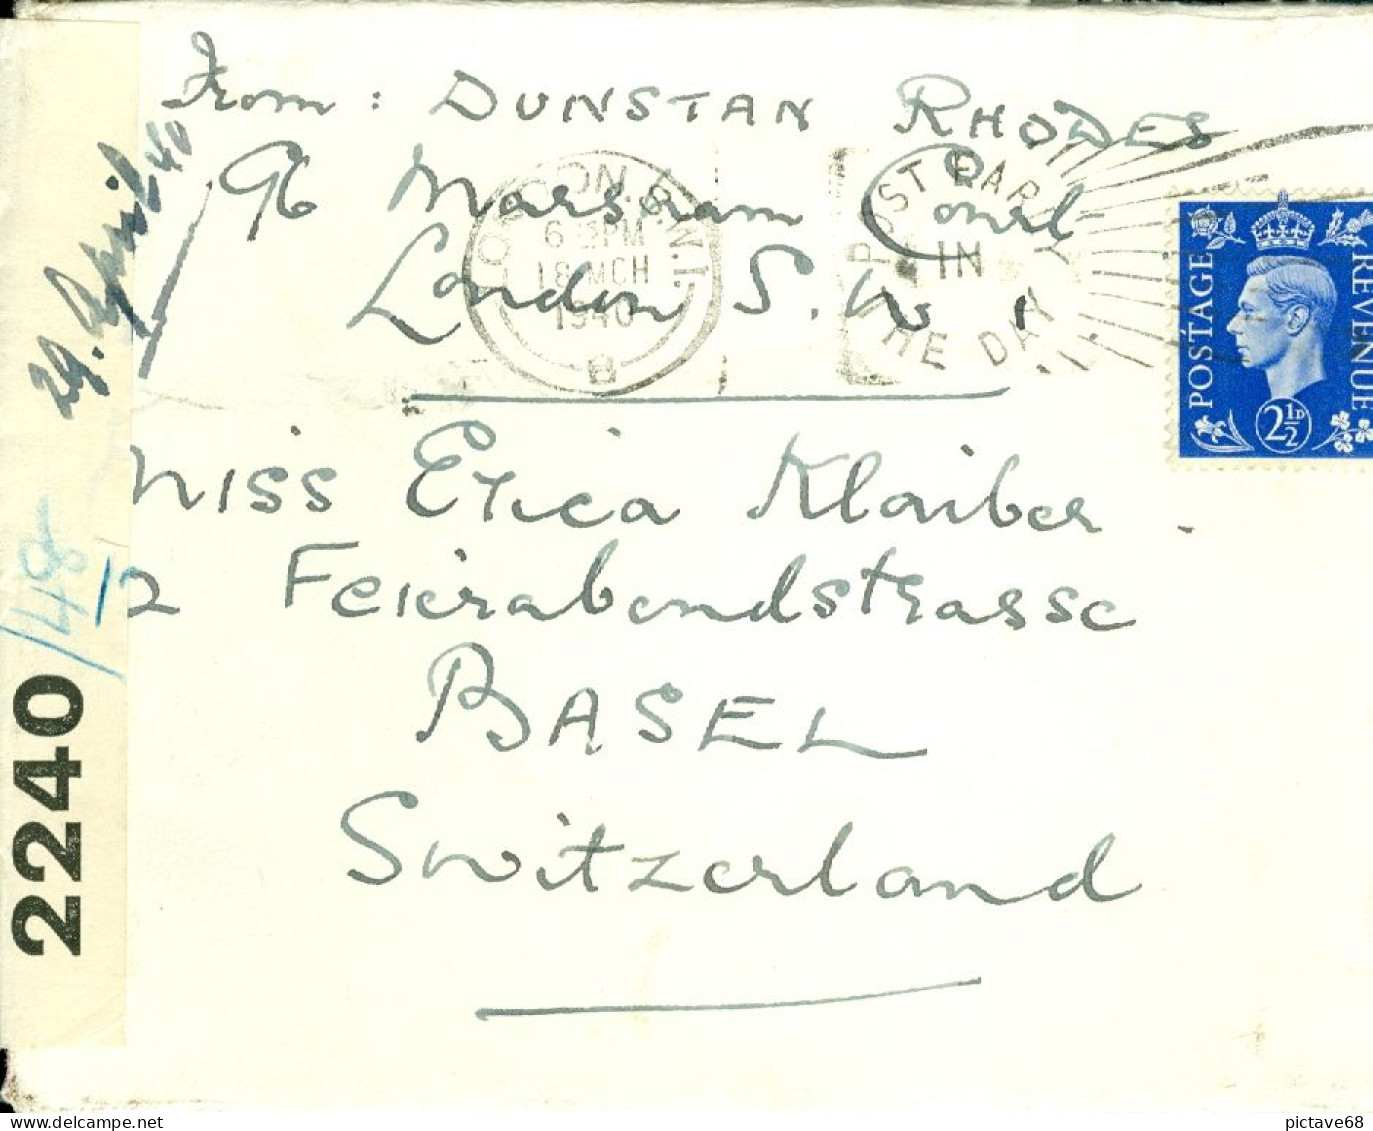 From: DUNSTAN RHODES
96 Marsham Court
London S.W 1
LONDON S.W.1.
6 PM
18 MCH
1940
B
POST EARLY
IN
THE DAY
POSTAGE
REVENUE
2½D
Miss Erica Klaiber
2 Feierabendstrasse
BASEL
Switzerland
29. April 40
/48
2240
pictave68